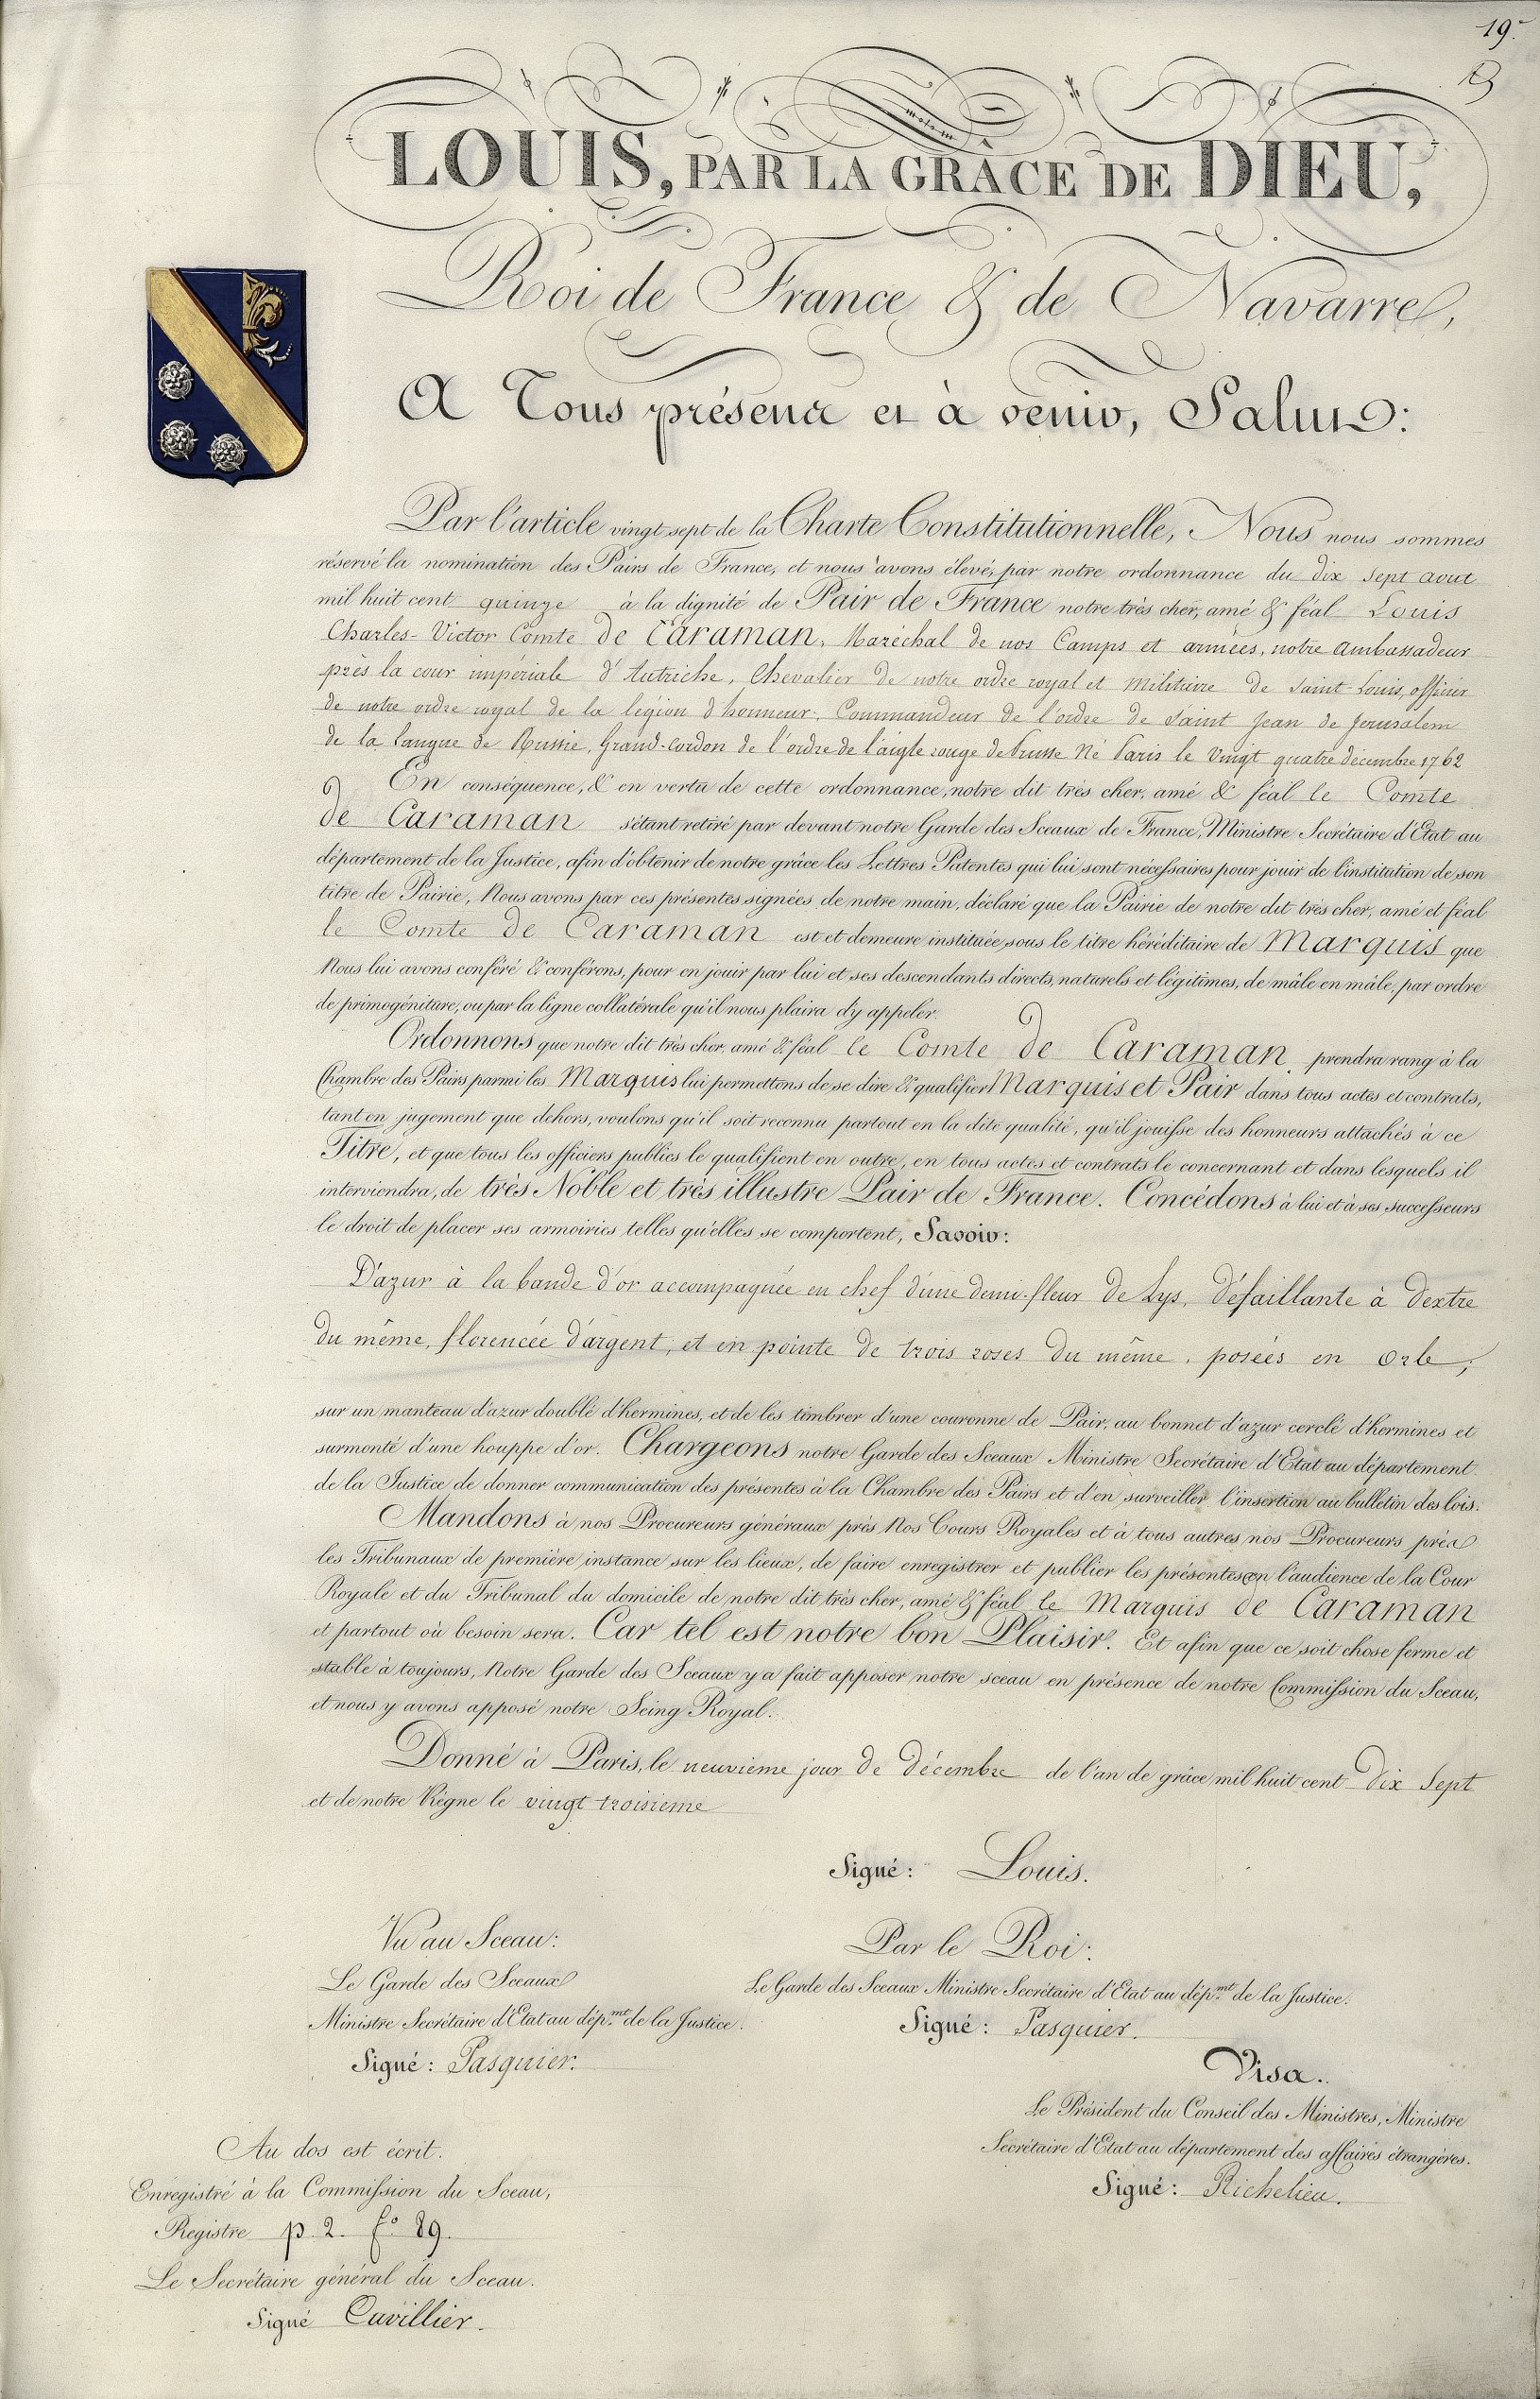 19.
LOUIS, PAR LA GRÂCE DE DIEU,
Roi de France & de Navarre,
A Tous présens et à venir, Salut:
Par l'article vingt sept de la Charte Constitutionnelle, Nous nous sommes
réservé la nomination des Pairs de France, et nous avons élevé, par notre ordonnance du dix sept aout
mil huit cent quinze à la dignité de Pair de France notre très cher, amé & féal Louis
Charles-Victor Comte de Caraman, Maréchal de nos Camps et armées, notre ambassadeur
près la cour impériale d'Autriche, Chevalier de notre ordre royal et militaire de Saint-Louis, officier
de notre ordre royal de la légion d'honneur, Commandeur de l'ordre de Saint Jean de Jerusalem
de la langue de Russie, Grand-Cordon de l'ordre de l'aigle rouge de Prusse Né Paris le vingt quatre décembre 1762
En conséquence, & en vertu de cette ordonnance, notre dit très cher, amé & féal le Comte
de Caraman s'étant retiré par devant notre Garde des Sceaux de France, Ministre Secrétaire d'Etat au
département de la Justice, afin d'obtenir de notre grâce les Lettres Patentes qui lui sont nécessaires pour jouir de l'institution de son
titre de Pairie, Nous avons par ces présentes signées de notre main, déclaré que la Pairie de notre dit très cher, amé et féal
le Comte de Caraman est et demeure instituée sous le titre héréditaire de Marquis que
Nous lui avons conféré & conférons, pour en jouir par lui et ses descendants directs, naturels et légitimes, de mâle en mâle, par ordre
de primogéniture, ou par la ligne collatérale qu'il nous plaira d'y appeler.
Ordonnons que notre dit très cher, amé & féal le Comte de Caraman prendra rang à la
Chambre des Pairs parmi les Marquis lui permettons de se dire & qualifier Marquis et Pair dans tous actes et contrats,
tant en jugement que dehors, voulons qu'il soit reconnu partout en la dite qualité, qu'il jouisse des honneurs attachés à ce
Titre, et que tous les officiers publics le qualifient en outre, en tous actes et contrats le concernant et dans lesquels il
interviendra, de très Noble et très illustre Pair de France. Concédons à lui et à ses successeurs
le droit de placer ses armoiries telles qu'elles se comportent, Savoir:
D'azur à la bande d'or accompagnée en chef d'une demi-fleur de Lys, défaillante à dextre
du même, florencée d'argent, et en pointe de trois roses du même, posées en orle,
sur un manteau d'azur doublé d'hermines, et de les timbrer d'une couronne de Pair, au bonnet d'azur cerclé d'hermines et
surmonté d'une houppe d'or. Chargeons notre Garde des Sceaux Ministre Secrétaire d'Etat au département
de la Justice de donner communication des présentes à la Chambre des Pairs et d'en surveiller l'insertion au bulletin des lois.
Mandons à nos Procureurs généraux près Nos Cours Royales et à tous autres nos Procureurs près
les Tribunaux de première instance sur les lieux, de faire enregistrer et publier les présentes en l'audience de la Cour
Royale et du Tribunal du domicile de notre dit très cher, amé & féal le Marquis de Caraman
et partout où besoin sera. Car tel est notre bon Plaisir. Et afin que ce soit chose ferme et
stable à toujours, Notre Garde des Sceaux y a fait apposer notre sceau en présence de notre Commission du Sceau,
et nous y avons apposé notre Seing Royal.
Donné à Paris, le neuvième jour de décembre de l'an de grâce mil huit cent dix sept
et de notre Règne le vingt troisième
Signé: Louis.
Vu au Sceau:
Le Garde des Sceaux
Ministre Secrétaire d'Etat au dép.mt de la Justice.
Signé: Pasquier.
Par le Roi:
Le Garde des Sceaux Ministre Secrétaire d'Etat au dép.mt de la Justice.
Signé: Pasquier.
Visa.
Le Président du Conseil des Ministres, Ministre
Secrétaire d'Etat au département des affaires étrangères.
Signé: Richelieu.
Au dos est écrit.
Enregistré à la Commission du Sceau,
Registre p. 2. fo 89.
Le Secrétaire général du Sceau.
Signé Cuvillier.